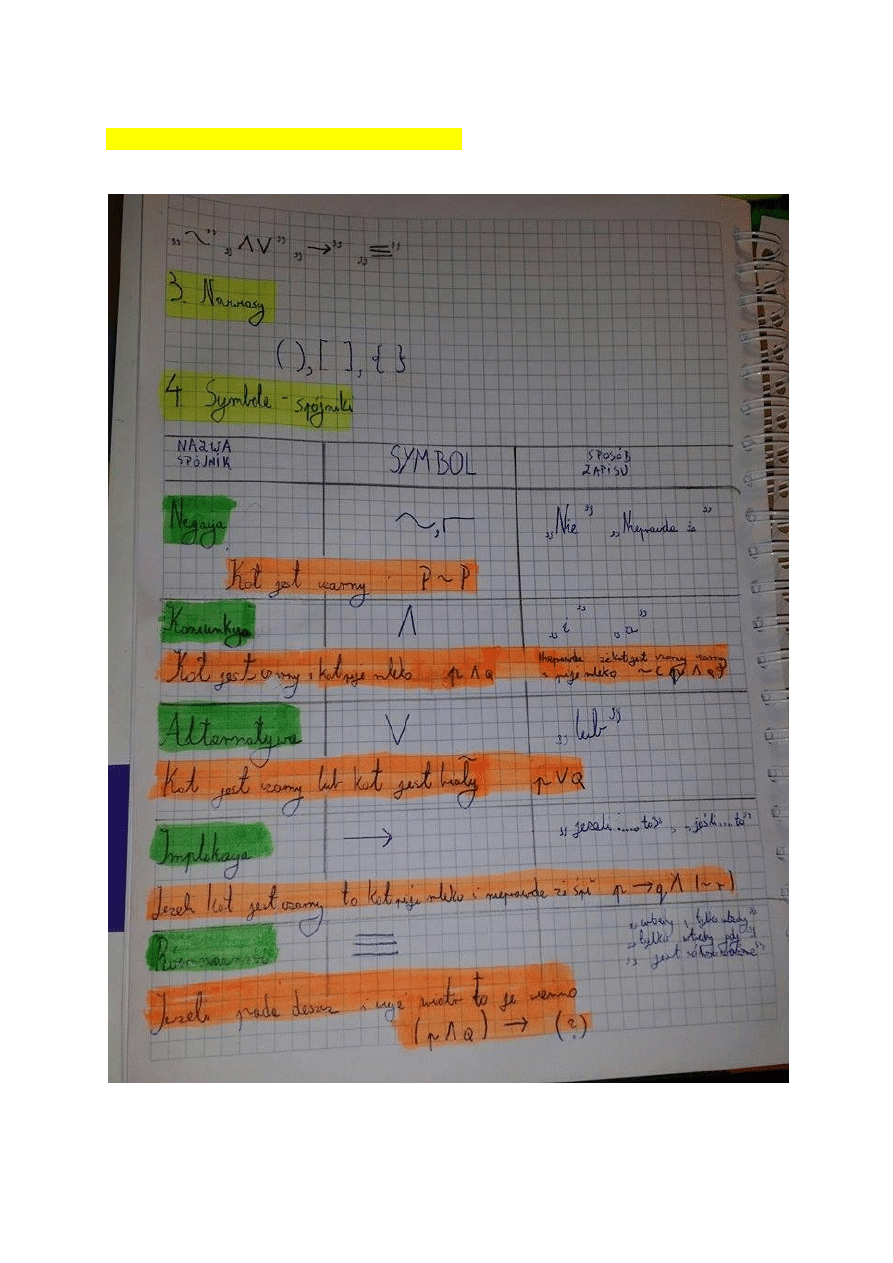 „~” „∧∨” „→” „≡”
3. Nawiasy
( ), [ ], { }
4. Symbole - spójniki
NAZWA SPÓJNIK
SYMBOL
SPOSÓB ZAPISU
Negacja
~, Γ
„Nie” „Nieprawda że”
Kot jest czarny. P ~ P
Koniunkcja
∧
„i” „a”
Kot jest czarny i kot pije mleko p ∧ Q
Nieprawda że kot jest czarny
i pije mleko ~ ( p ∧ q)
Alternatywa
∨
„lub”
Kot jest czarny lub kot jest biały p ∨ Q
Implikacja
→
„jeżeli.....to”, „jeśli...to”
Jeżeli kot jest czarny to kot pije mleko i nieprawda że śpi p → q ∧ (~ r)
Równoważność
≡
„wtedy i tylko wtedy”
„tylko wtedy gdy”
„jest równoważne”
Jeżeli pada deszcz i wieje wiatr to jest
(p ∧ Q) → (?)